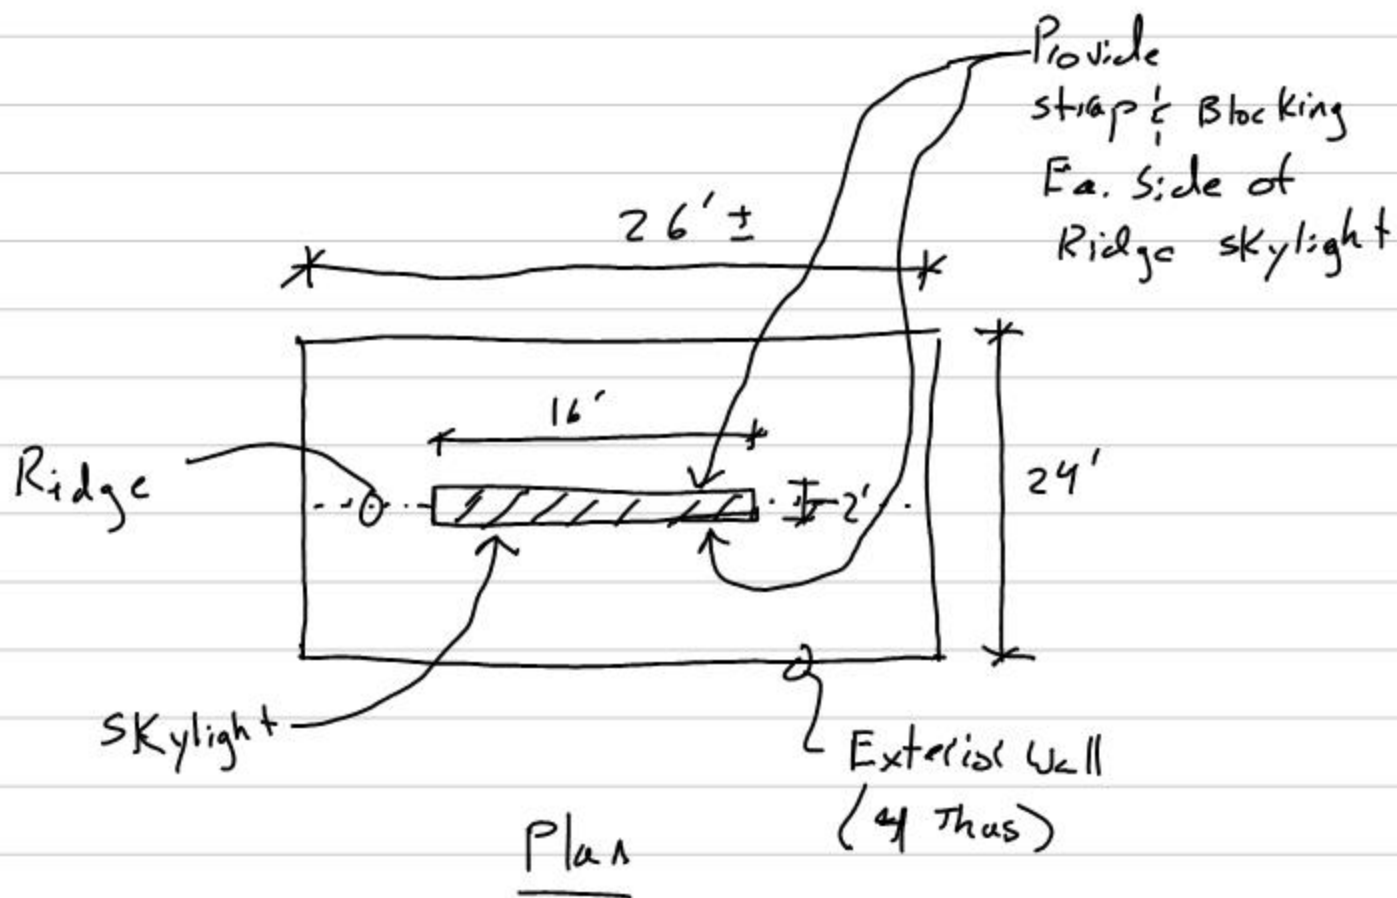 Provide
strap & Blocking
Ea. Side of
Ridge skylight
26' ±
16'
Ridge
2'
24'
Skylight
Exterior Wall
(4 Thus)
Plan